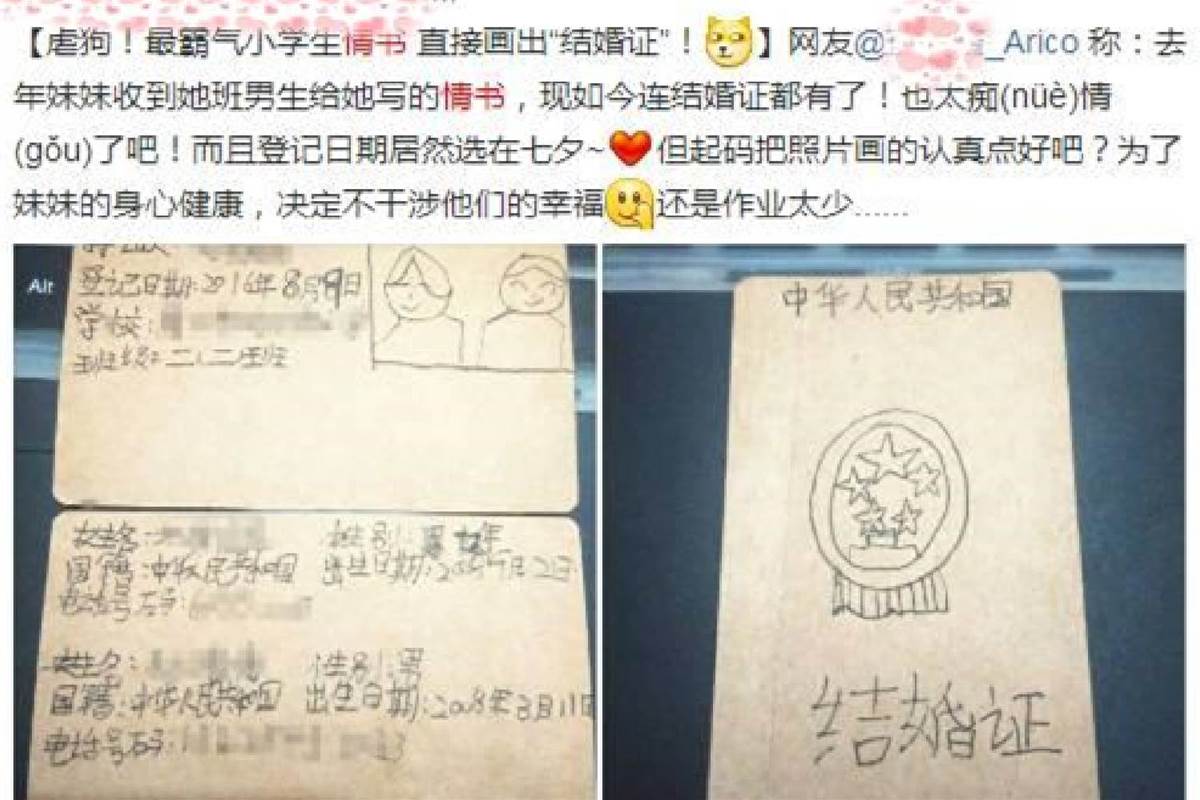 【虐狗！最霸气小学生情书 直接画出“结婚证”！】网友@ _Arico 称：去
年妹妹收到她班男生给她写的情书，现如今连结婚证都有了！也太痴(nüè)情
(gǒu)了吧！而且登记日期居然选在七夕~但起码把照片画的认真点好吧？为了
妹妹的身心健康，决定不干涉他们的幸福 还是作业太少......
Alt
登记日期:2016年8月9日
学校:
班级: 二(二)班
姓名: 性别:
国籍:中华人民共和国 出生日期:
电话号码:
姓名: 性别:男
国籍:中华人民共和国 出生日期:2008年3月11日
电话号码: 3
中华人民共和国
结婚证